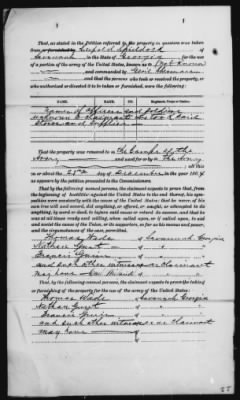 That, as stated in the petition referred to, the property in question was taken
from or furnished by Leopold Guildord of
Savannah in the State of Georgia for the use
of a portion of the army of the United States, known as
and commanded by Genl Sherman
and that the persons who took or received the property, or
who authorized or directed it to be taken or furnished, were the following:
Name of Officers and Soldiers
unknown to claimant
Stores and Supplies
That the property was removed to the Camps of the
Army and used for or by the Army
all this
on or about the 25th day of December in the year 1864
as appears by the petition presented to the Commissioners.
That by the following named persons, the claimant expects to prove that, from
the beginning of hostilities against the United States to the end thereof, his sympathies
were constantly with the cause of the United States; that he never, of his
own free will and accord, did anything, or offered, or sought, or attempted to do
anything, by word or deed, to injure said cause or retard its success, and that he
was at all times ready and willing, when called upon, or if called upon, to aid
and assist the cause of the Union, or its supporters, so far as his means and power,
and the circumstances of the case, permitted.
Thomas Wade of Savannah Georgia
Nathan of " "
Francis of " "
and such other witnesses as claimant
may have of " "
That, by the following named persons, the claimant expects to prove the taking
or furnishing of the property for the use of the army of the United States:
Thomas Wade of Savannah Georgia
Nathan of " "
Francis of " "
and such other witnesses as claimant
may have of " "